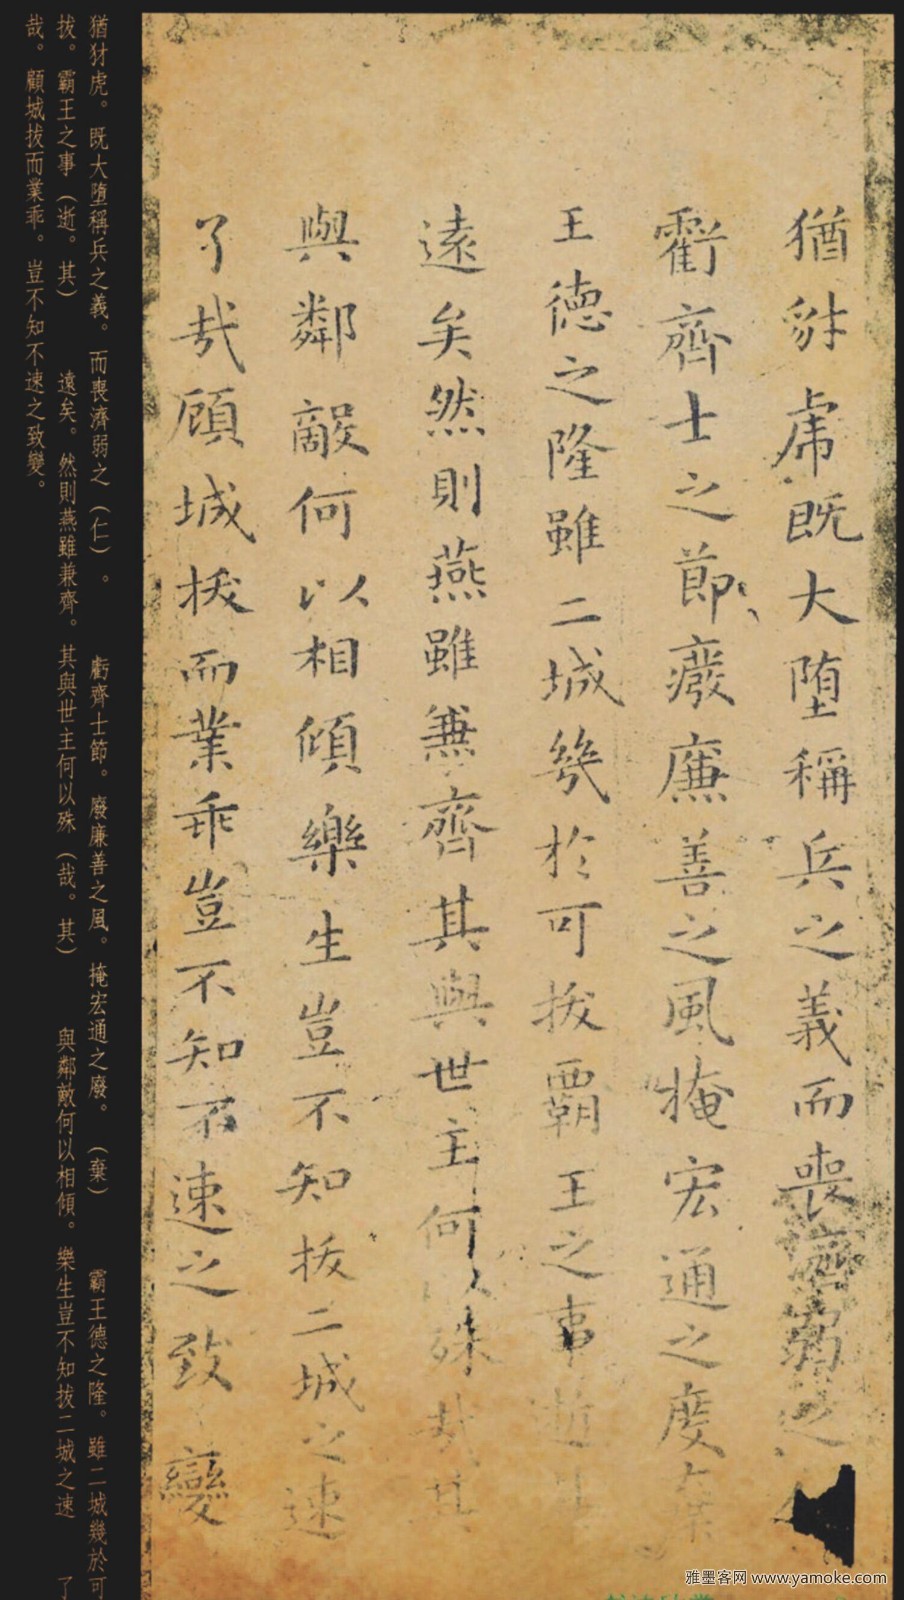 猶豺虎既大堕稱兵之義而喪濟弱之
虧齊士之節廢廉善之風掩宏通之度棄
王德之隆雖二城幾於可拔霸王之事逝
遠矣然則燕雖兼齊其與世主何以殊哉其
與鄰敵何以相傾樂生豈不知拔二城之速
了哉顧城拔而業乖豈不知不速之致變
猶犲虎。既大堕稱兵之義。而喪濟弱之（仁）。 虧齊士節。廢廉善之風。掩宏通之廢。（棄） 霸王德之隆。雖二城幾於可
拔。霸王之事（逝。其） 遠矣。然則燕雖兼齊。其與世主何以殊（哉。其） 與鄰敵何以相傾。樂生豈不知拔二城之速 了
哉。顧城拔而業乖。豈不知不速之致變。
雅墨客网 www.yamoke.com